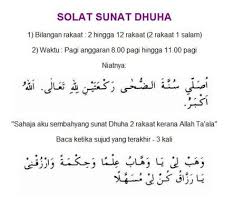 SOLAT SUNAT DHUHA
1) Bilangan rakaat : 2 hingga 12 rakaat (2 rakaat 1 salam)
2) Waktu : Pagi anggaran 8.00 pagi hingga 11.00 pagi
Niatnya:
اُصَلِّي سُنَّةَ الضُّحَى رَكْعَتَيْنِ لِلّٰهِ تَعَالَى. اَللّٰهُ
اَكْبَرُ.
"Sahaja aku sembahyang sunat Dhuha 2 rakaat kerana Allah Ta'ala"
Baca ketika sujud yang terakhir - 3 kali
وَهَبْ لِيْ يَا وَهَّابُ عِلْمًا وَحِكْمَةً وَارْزُقْنِيْ
يَا رَزَّاقُ كُنْ لِيْ مُسَهِّلًا